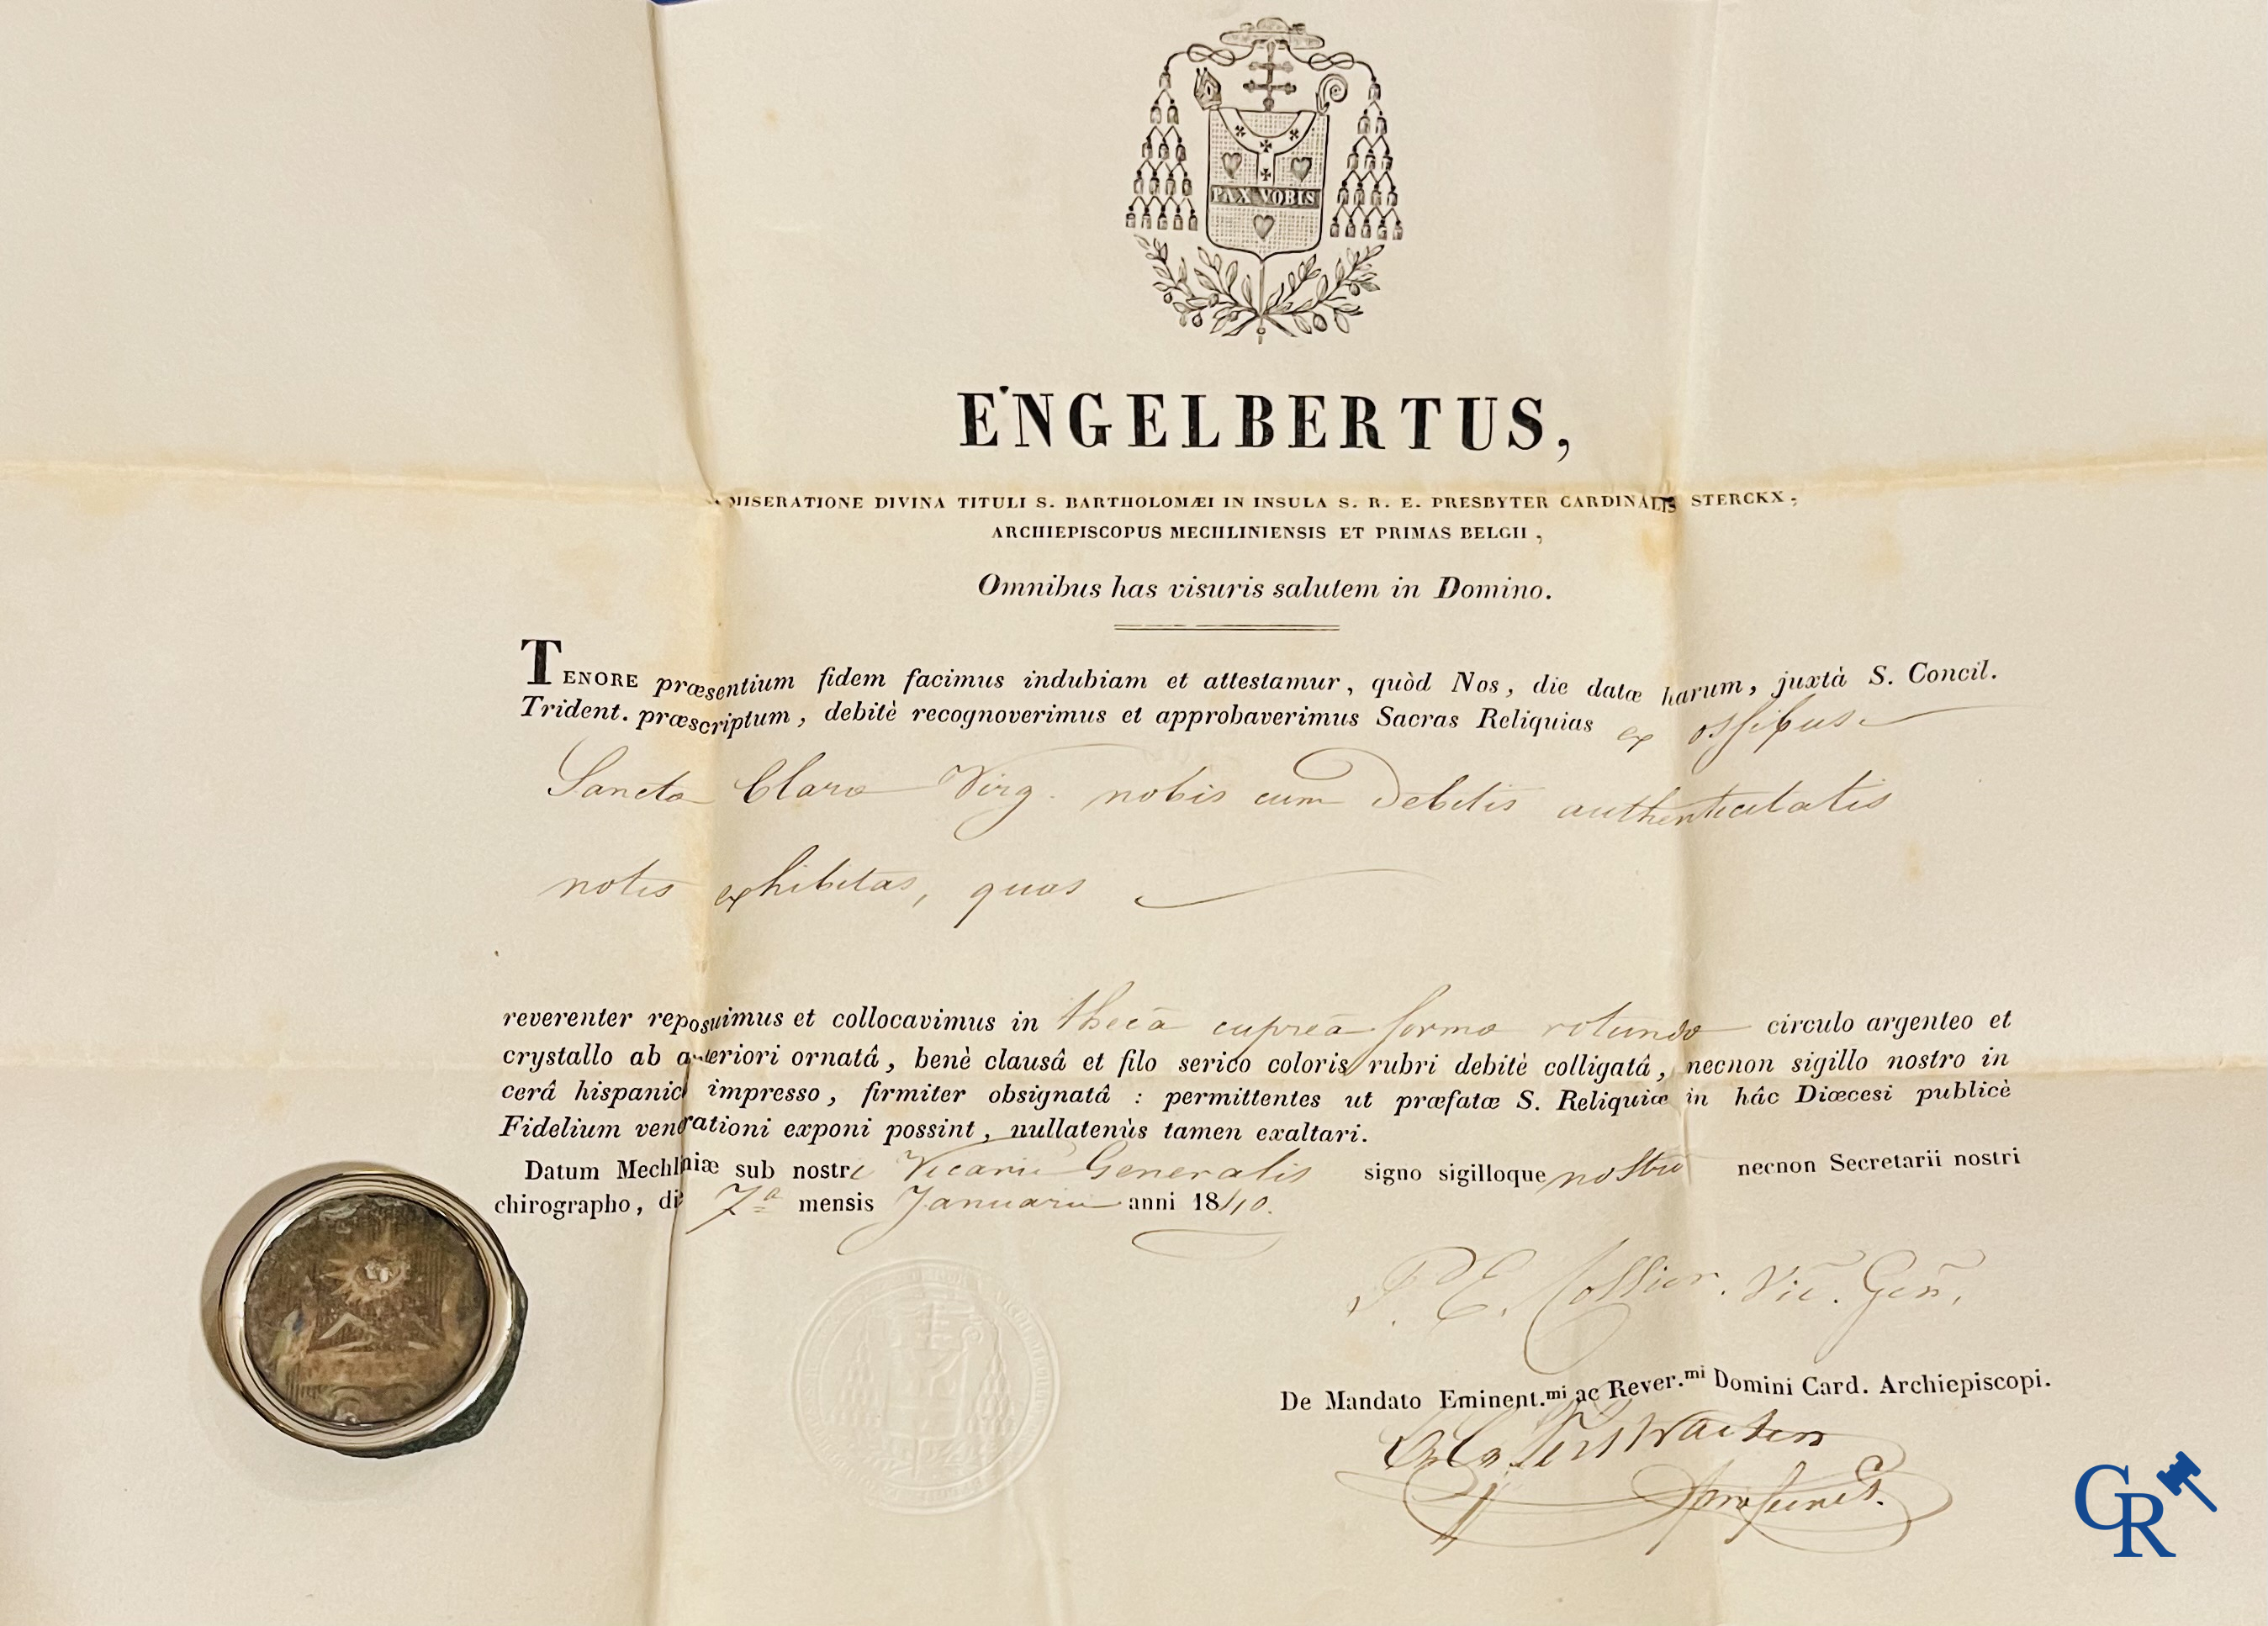 PAX VOBIS
ENGELBERTUS,
MISERATIONE DIVINA TITULI S. BARTHOLOMÆI IN INSULA S. R. E. PRESBYTER CARDINALIS STERCKX,
ARCHIEPISCOPUS MECHLINIENSIS ET PRIMAS BELGII,
Omnibus has visuris salutem in Domino.
TENORE præsentium fidem facimus indubiam et attestamur, quòd Nos, die datæ harum, juxtà S. Concil.
Trident. præscriptum, debitè recognoverimus et approbaverimus Sacras Reliquias ex ossibus
Sanctæ Claræ Virg. nobis cum debitis authenticitatis
notis exhibitas, quas
reverenter reposuimus et collocavimus in thecâ cupreâ formæ rotundæ circulo argenteo et
crystallo ab anteriori ornatâ, benè clausâ et filo serico coloris rubri debitè colligatâ, necnon sigillo nostro in
cerâ hispanicâ impresso, firmiter obsignatâ : permittentes ut præfatæ S. Reliquiæ in hâc Diœcesi publicè
Fidelium venerationi exponi possint, nullatenùs tamen exaltari.
Datum Mechliniæ sub nostri Vicarii Generalis signo sigilloque nostro necnon Secretarii nostri
chirographo, die 7a mensis Januarii anni 1840.
P. E. Collier. Vic. Gen.
De Mandato Eminent.mi ac Rever.mi Domini Card. Archiepiscopi.
CR